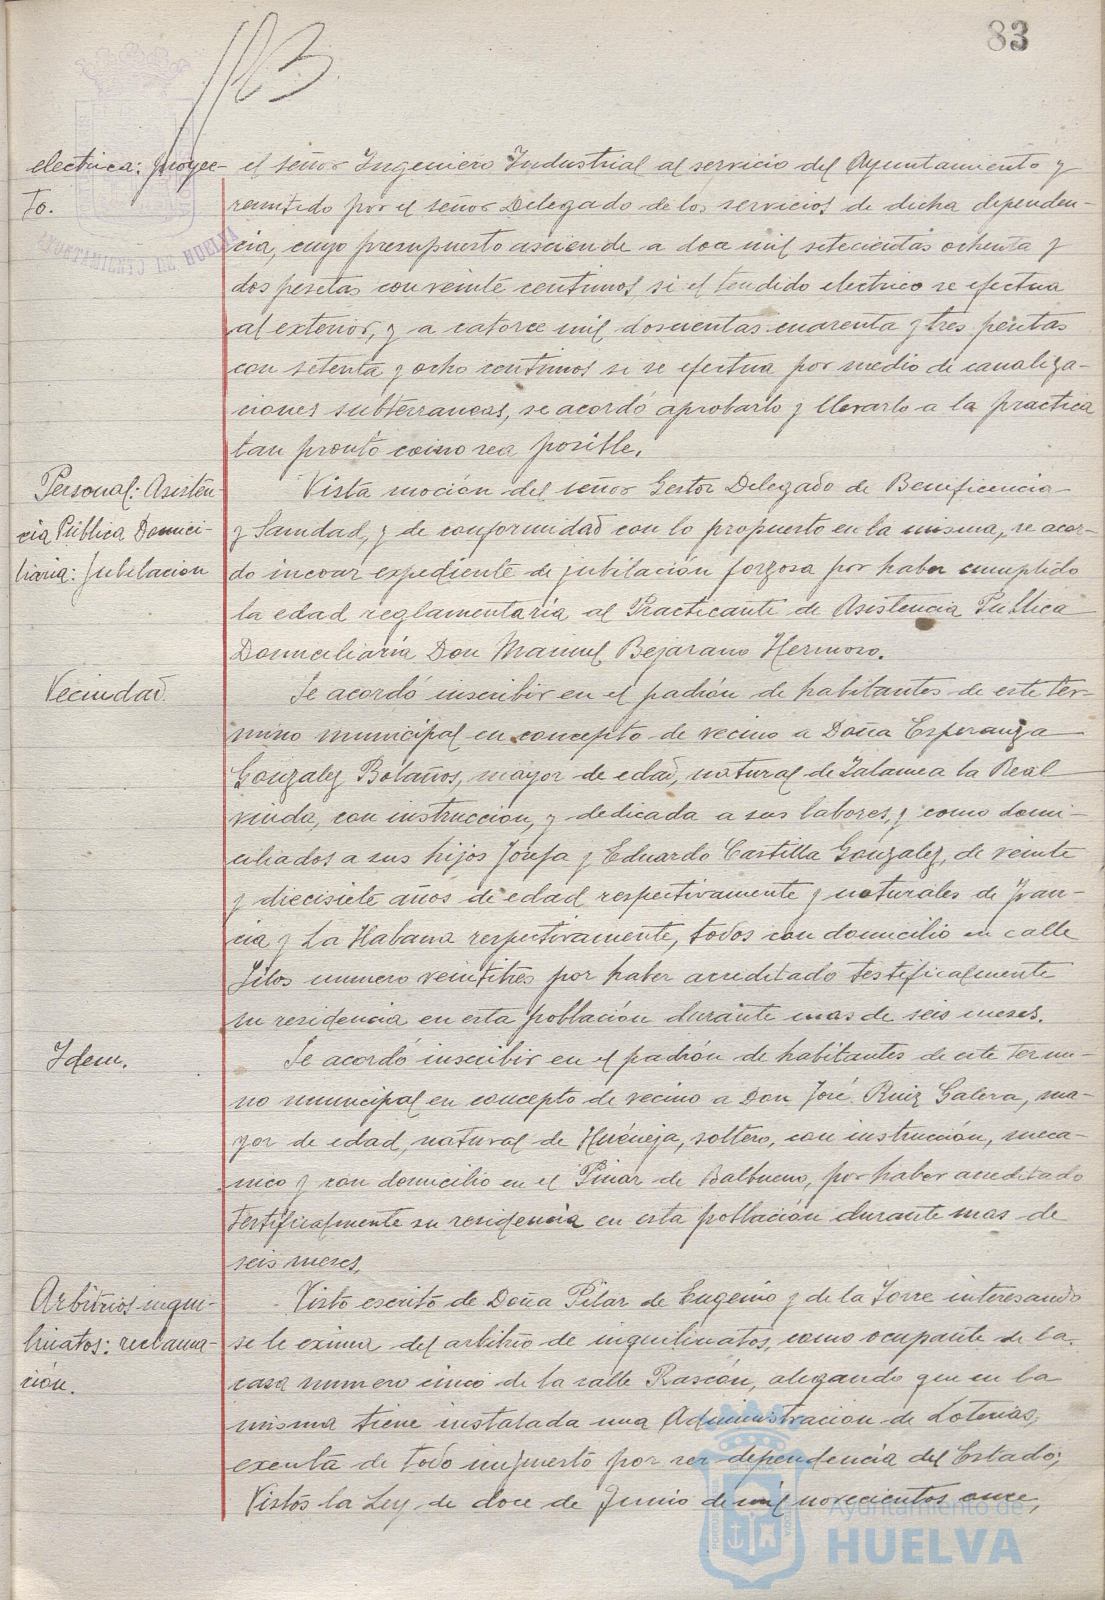 83
183
AYUNTAMIENTO DE HUELVA
electrica: proyec-
to.
el señor Ingeniero Industrial al servicio del Ayuntamiento y
remitido por el señor Delegado de los servicios de dicha dependen-
cia, cuyo presupuesto asciende a doce mil setecientas ochenta y
dos pesetas con veinte centimos si el tendido electrico se efectua
al exterior, y a catorce mil doscuentas cuarenta y tres pesetas
con setenta y ocho centimos si se efectua por medio de canaliza-
ciones subterraneas, se acordó aprobarlo y llevarlo a la practica
tan pronto como sea posible.
Personal: Asisten-
cia Pública Domici-
liaria: Jubilacion
Vista moción del señor Gestor Delegado de Beneficencia
y Sanidad, y de conformidad con lo propuesto en la misma, se acor-
do incoar expediente de jubilación forzosa por haber cumplido
la edad reglamentaria al Practicante de Asistencia Publica
Domiciliaria Don Manuel Bejarano Hermoso.
Vecindad
Se acordó inscribir en el padrón de habitantes de este ter-
mino municipal en concepto de vecino a Doña Esperanza
Gonzalez Bolaños, mayor de edad, natural de Zalamea la Real
viuda, con instruccion, y dedicada a sus labores, y como domi-
ciliados a sus hijos Josefa y Eduardo Castilla Gonzalez, de veinte
y diecisiete años de edad respectivamente y naturales de Fran-
cia y La Habana respectivamente, todos con domicilio en calle
Silos numero veintitrés por haber acreditado testificalmente
su residencia en esta población durante mas de seis meses.
Idem.
Se acordó inscribir en el padrón de habitantes de este termi-
no municipal en concepto de vecino a Don José Ruiz Galera, ma-
yor de edad, natural de Huéneja, soltero, con instrucción, meca-
nico y con domicilio en el Pinar de Balbueno, por haber acreditado
testificalmente su residencia en esta población durante mas de
seis meses.
Arbitrios inqui-
linatos: reclama-
ción.
Visto escrito de Doña Pilar de Eugenio y de la Torre interesando
se le exima del arbitrio de inquilinatos, como ocupante de la
casa numero cinco de la calle Rascón, alegando que en la
misma tiene instalada una Administracion de Loterias,
exenta de todo impuesto por ser dependencia del Estado;
Vistos la Ley de doce de Junio de mil novecientos once,
Ayuntamiento de
HUELVA